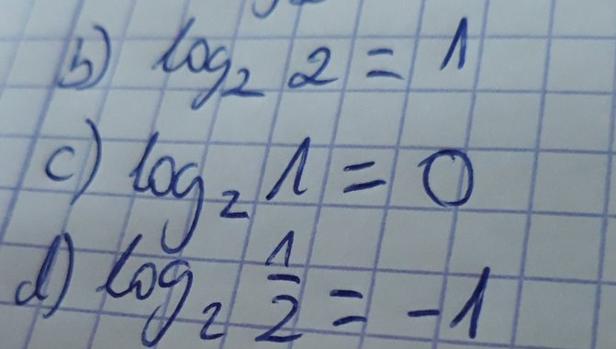 b) log₂ 2 = 1
c) log₂ 1 = 0
d) log₂ 1/2 = -1